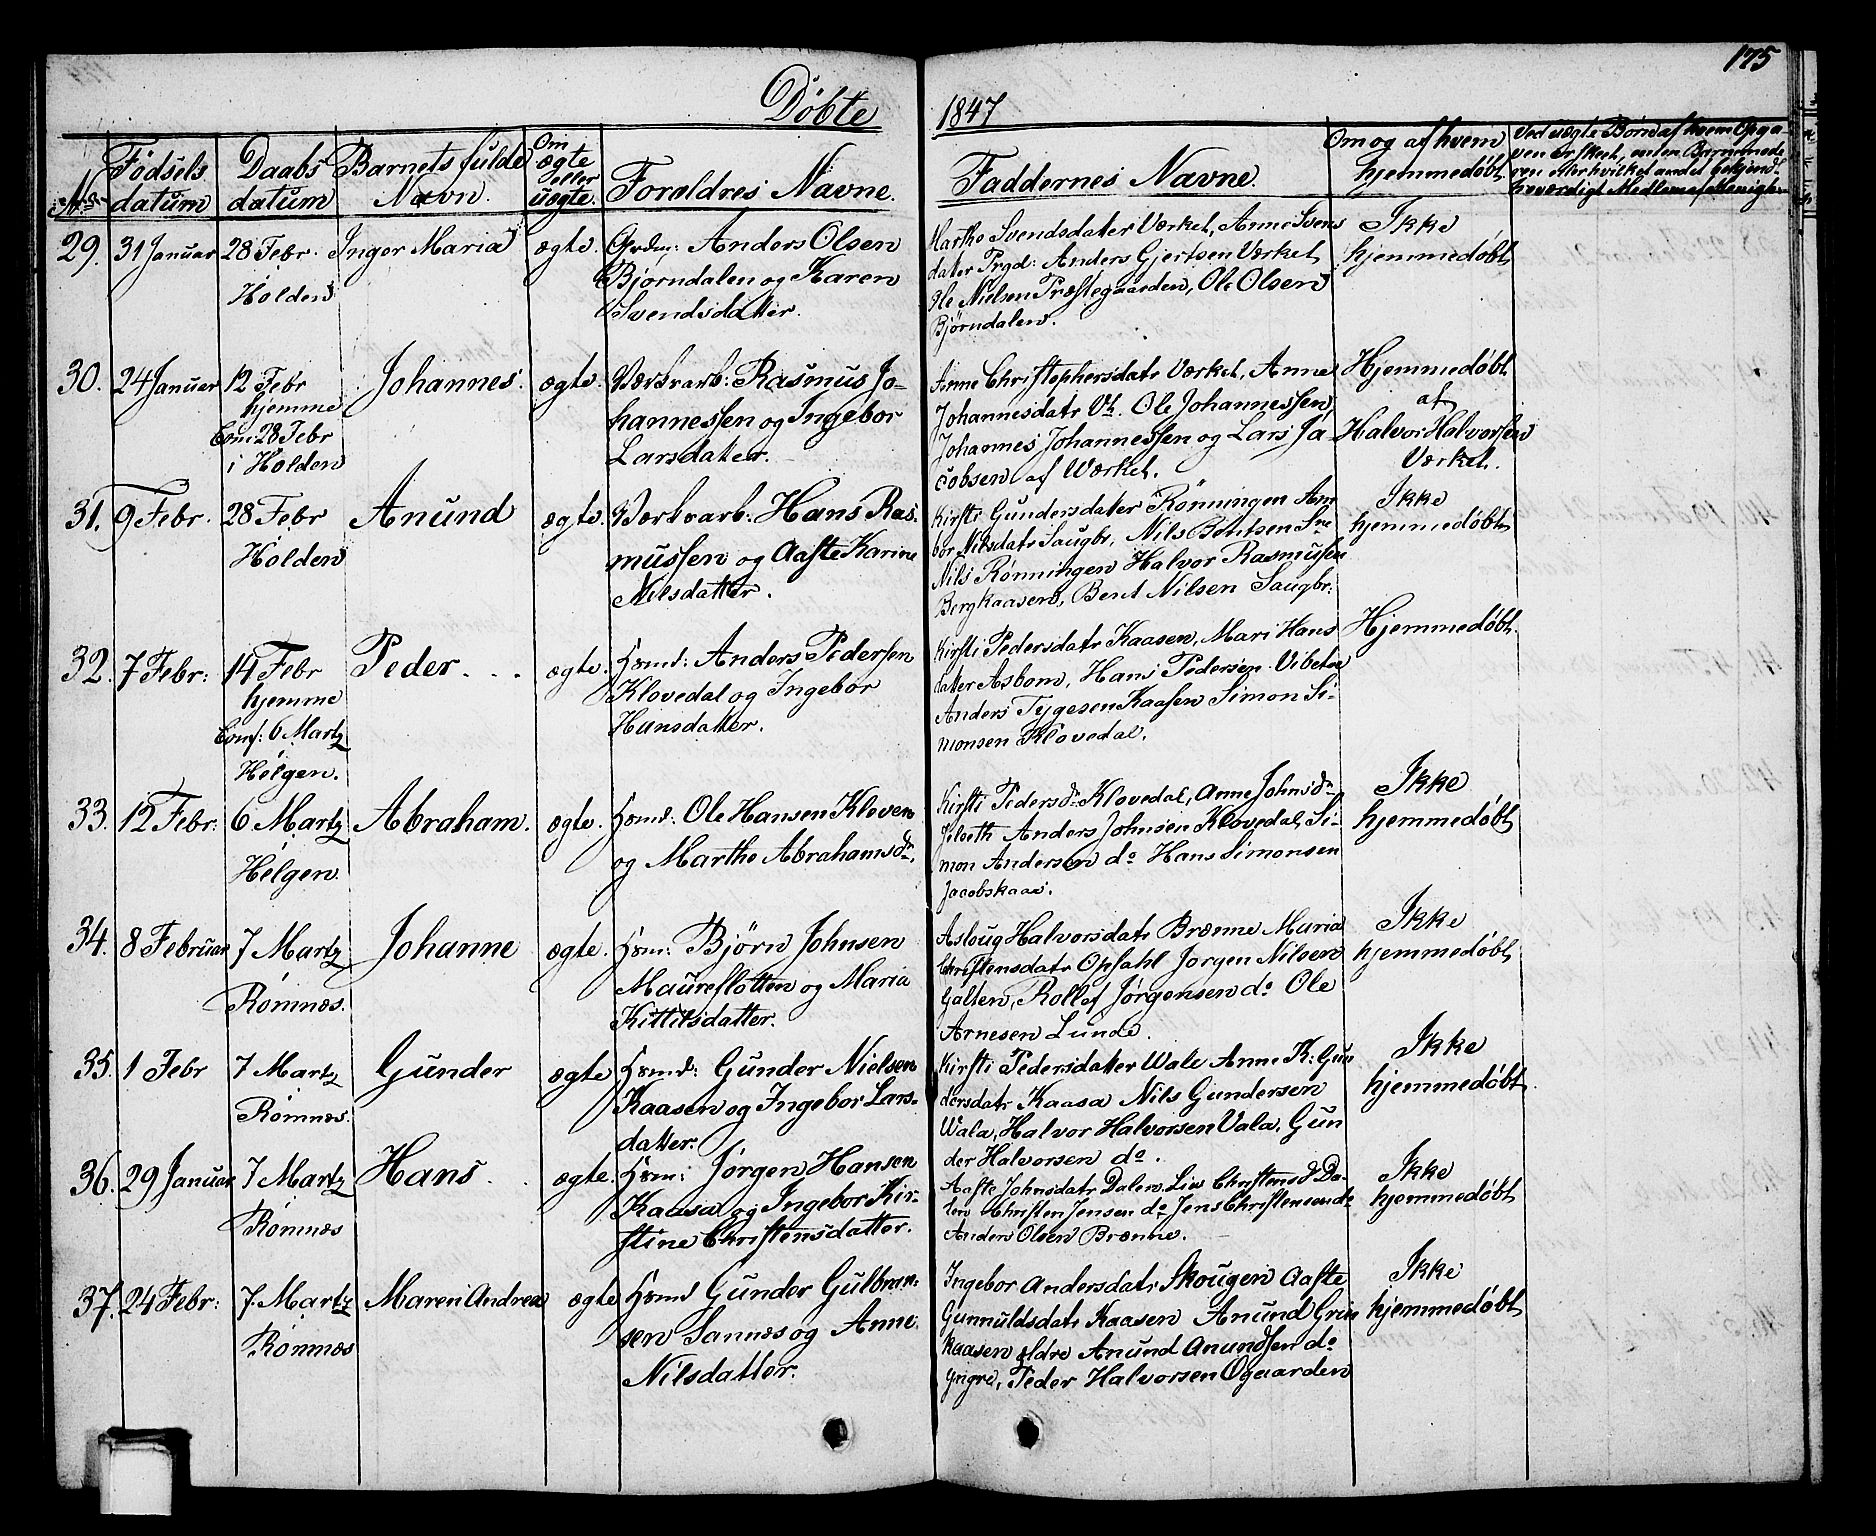 175
Døbte 1847
No
Fødsels datum
Daabs datum
Barnets fulde Navn.
Om ægte eller uægte.
Forældres Navne.
Faddernes Navne.
Om og af hvem hjemmedøbt
Ved uægte Børn af hvem Opga-
ven er skeet,
29. 31 Januar 28 Febr. Inger Maria ægte. Anders Olsen
Holden Bjørndalen og Karen
Svendsdatter.
Marthe Svendsdater Værket, Anne Svens
dater Prgd: Anders Gjertsen Værket
Ole Nielsen Præstegaarden, Ole Olsen
Bjørndalen.
Ikke
hjemmedøbt
30. 24 Januar 12 Febr Johannes. ægte. Værkarb: Rasmus Jo-
hjemme hannessen og Ingebor
Conf: 28 Febr Larsdatter.
i Holden
Anne Christophersdatr Værket, Anne
Johannesdatr Vk. Ole Johannessen,
Johannes Johannessen og Lars Ja-
cobsen af Værket.
Hjemmedøbt
af
Halvor Halvorsen
Værket.
31. 9 Febr. 28 Febr Anund ægte. Værkarb: Hans Ras-
Holden mussen og Aaste Karine
Nilsdatter.
Kirsti Gundersdater Rønningen
bor Nilsdatr Saugbr, Nils Bentsen
Nils Rønningen Halvor Rasmussen
Bergkaasen, Bent Nilsen Saugbr:
Ikke
hjemmedøbt
32. 7 Febr: 14 Febr Peder ... ægte. Huusmd: Anders Pedersen
hjemme Klovedal og Ingebor
Conf: 6 Martz Hansdatter.
Helgen.
Kirsti Pedersdatr Kaasen, Mari Hans
datter Asbom, Hans Pedersen Vibeto
Anders Tygesen Kaasen Simon Si-
monsen Klovedal.
Hjemmedøbt.
33. 12 Febr: 6 Martz Abraham. ægte. Huusmd: Ole Hansen Kloven
Helgen og Marthe Abrahamsdr.
Kirsti Pedersdr Klovedal, Anne Johnsdr
Anders Johnsen Klovedal, Si-
mon Andersen do Hans Simonsen
Jacobskaas.
Ikke
hjemmedøbt
34. 8 Februar 7 Martz Johanne ægte. Huusm: Bjørn Johnsen
Romnæs. Maureflotten og Maria
Kittilsdatter.
Asloug Halvorsdatr Brænne Maria
Christensdatr Opsahl Jorgen Nilsen
Galten, Rollef Jørgensen do Ole
Arnesen Lunde.
Ikke
hjemmedøbt
35. 1 Febr 7 Martz Gunder ægte Huusmd: Gunder Nielsen
Romnæs. Kaasen og Ingebor Lars-
datter.
Kirsti Pedersdatter Wale Anne K: Gun
dersdatr Kaasa Nils Gundersen
Wala, Halvor Halvorsen Vala, Gun
der Halvorsen do.
Ikke
hjemmedøbt
36. 29 Januar 7 Martz Hans ægte. Huusm: Jørgen Hansen
Romnæs Kaasa og Ingebor Kir-
stine Christensdatter.
Aaste Johnsdatr Dalen, Liv Christensd Da-
len Christen Jensen do Jens Christensen do
Anders Olsen Brænne.
Ikke
hjemmedøbt
37. 24 Febr: 7 Martz Maren Andrea ægte Huusmd Gunder Gulbran-
Romnæs sen Sannæs og Anne
Nilsdatter.
Ingebor Andersdatr Skougen Aaste
Gunnuldsdatr Kaasen Anund Grin
kaasen ældre Anund Anundsen do
yngre, Peder Halvorsen Ogaarden
Ikke
hjemmedøbt